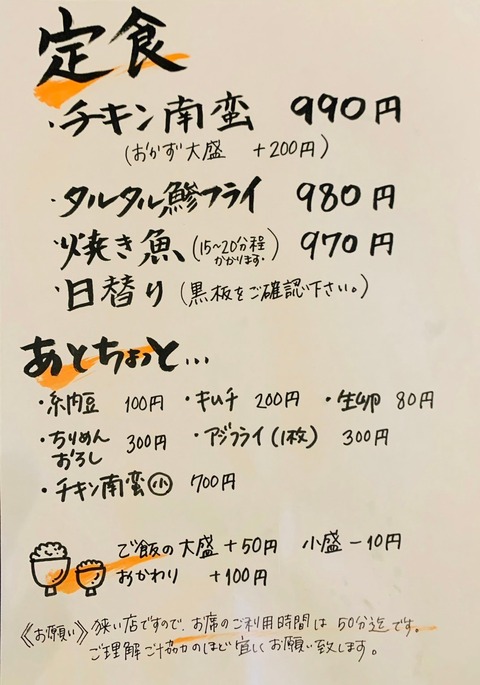 定食
・チキン南蛮 990円
(おかず大盛 +200円)
・タルタル鯵フライ 980円
・焼き魚 (15~20分程かかります。) 970円
・日替り (黒板をご確認下さい。)
あとちょっと...
・納豆 100円 ・キムチ 200円 ・生卵 80円
・ちりめんおろし 300円 ・アジフライ(1枚) 300円
・チキン南蛮㊙小 700円
ご飯の大盛+50円 小盛-10円
おかわり +100円
《お願い》狭い店ですので、お席のご利用時間は50分迄です。
ご理解ご協力のほど宜しくお願い致します。